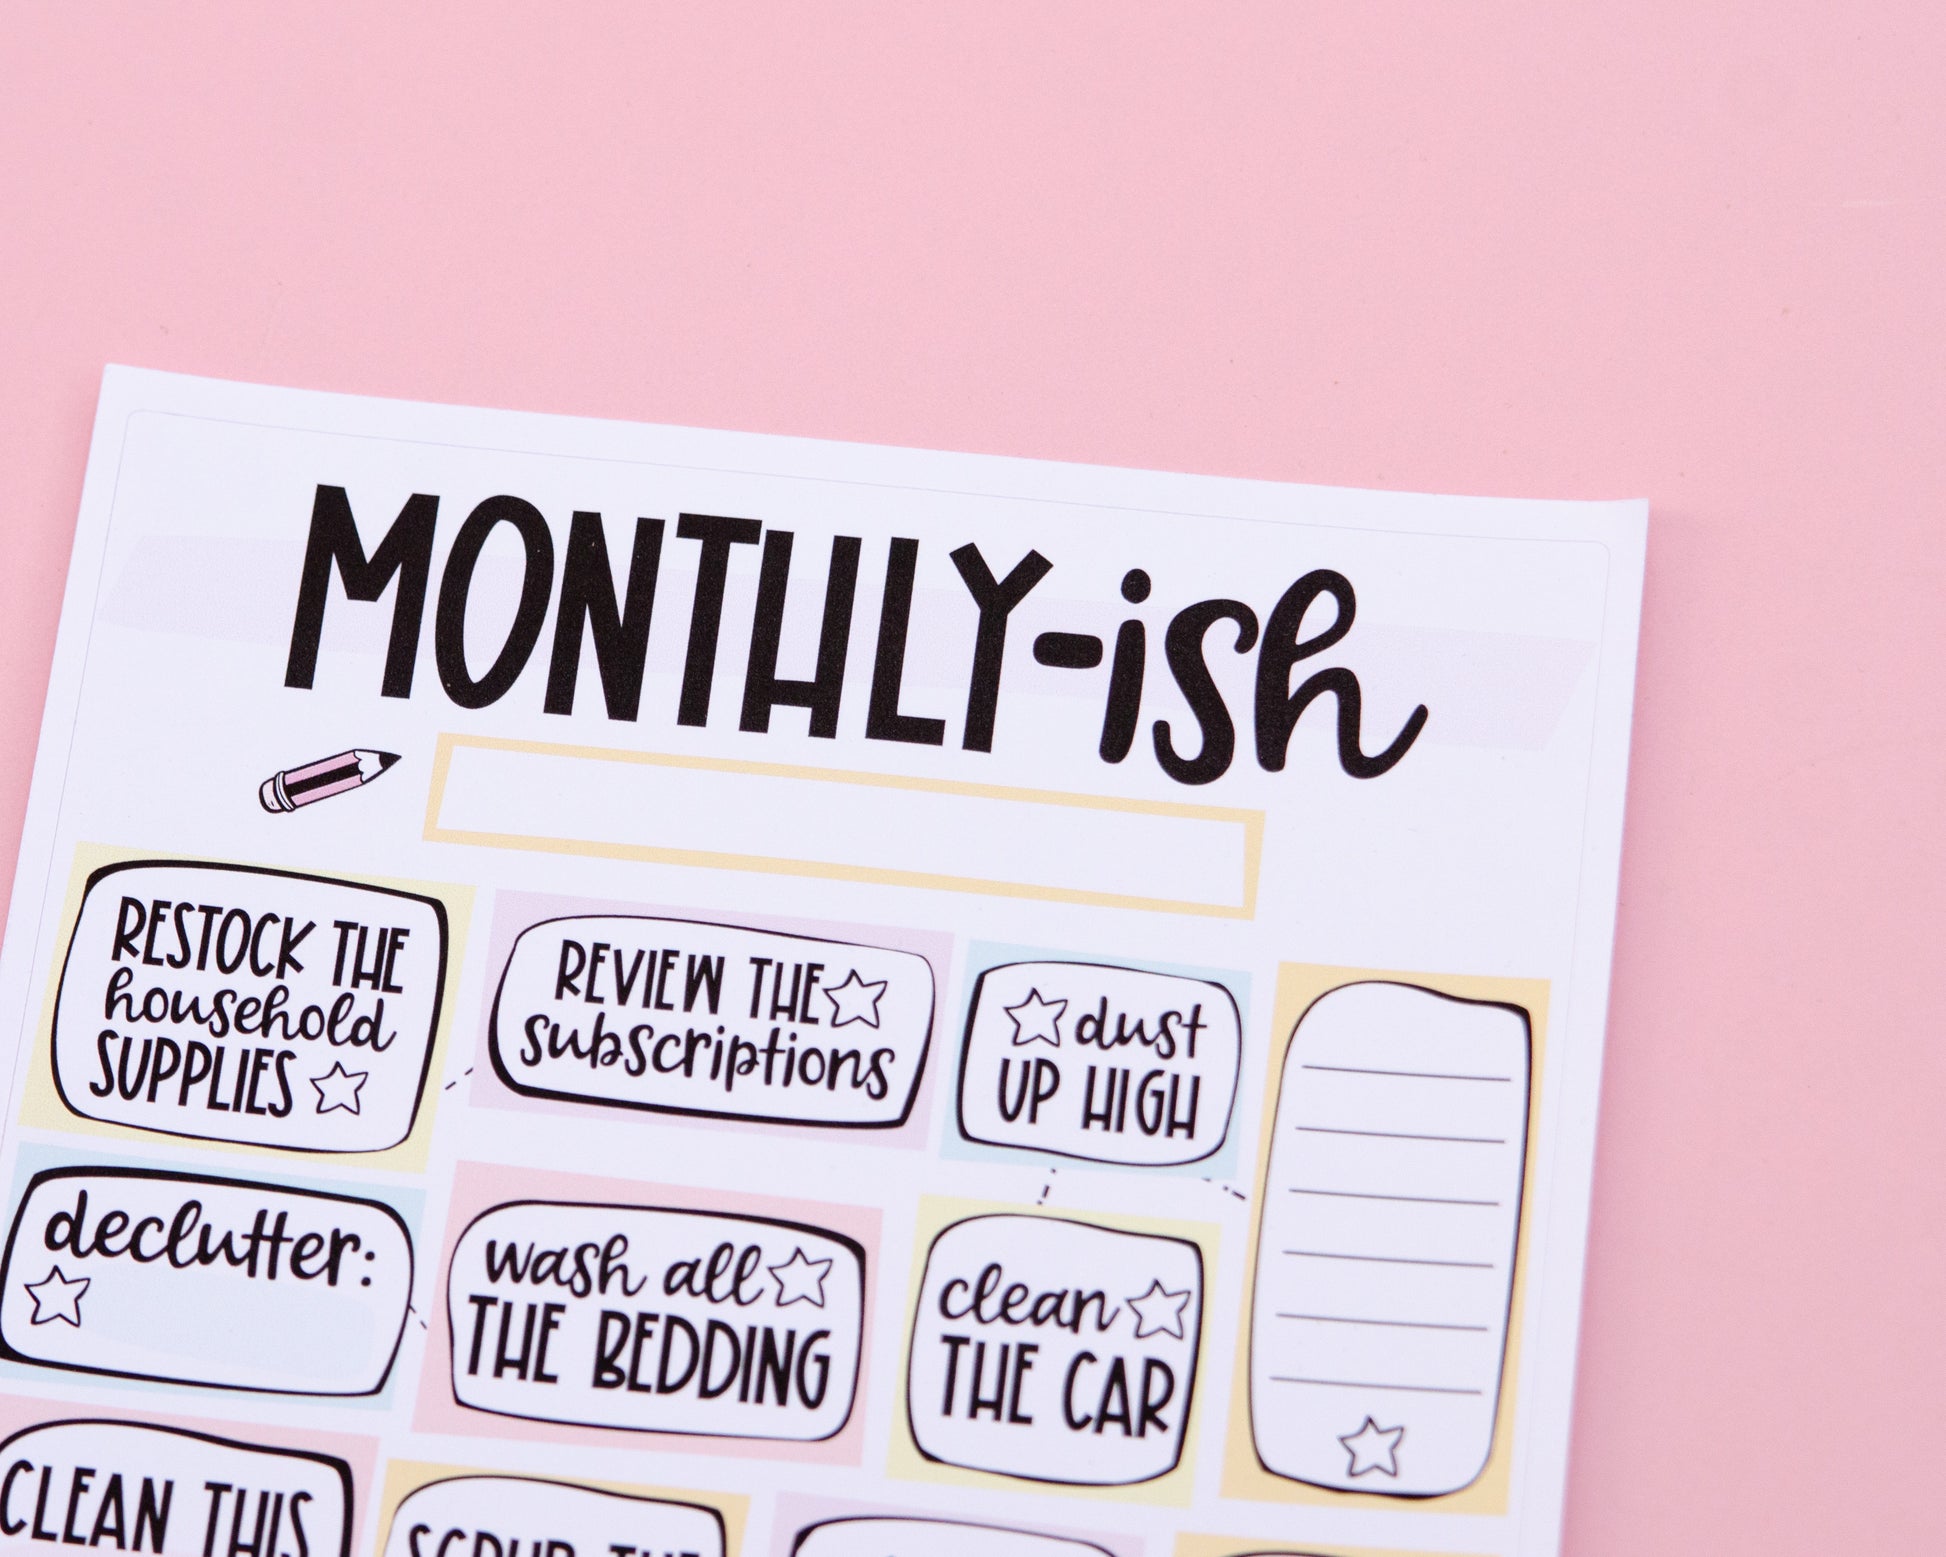 MONTHLY-ish
RESTOCK THE
household
SUPPLIES
REVIEW THE
subscriptions
dust
UP HIGH
declutter:
wash all
THE BEDDING
clean
THE CAR
CLEAN THIS
SCRUB THE